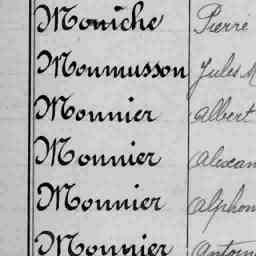 Moniche Pierre
Monmusson Jules M
Monnier Albert
Monnier Alexan
Monnier Alphon
Monnier Antoin